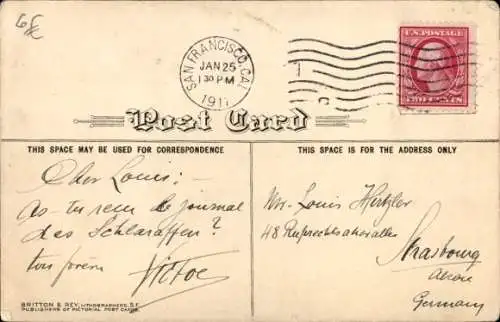 6€
SAN FRANCISCO, CAL.
JAN 25
1 30 PM
1911
U.S. POSTAGE
TWO CENTS
Post Card
THIS SPACE MAY BE USED FOR CORRESPONDENCE
THIS SPACE IS FOR THE ADDRESS ONLY
Cher Louis: -
As-tu reçu le journal
des Schlaraffen?
ton frère
Victor
BRITTON & REY, LITHOGRAPHERS, S.F.
PUBLISHERS OF PICTORIAL POST CARDS.
Mr. Louis Hertzler
48 Ruprechtsauerallee
Strasbourg
Alsace
Germany